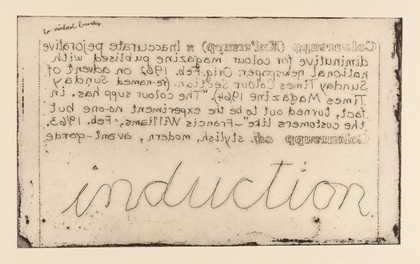 Coloursupp (Kul'ersupp) n Inaccurate pejorative
diminutive for colour magazine publised with
national newspaper. Orig. Feb. 1962 on advent of
Sunday Times Colour Section. (re-named Sunday
Times Magazine 1964). "The colour supp has, in
fact, turned out to be the experiment no-one but
the customers like" – Francis Williams, Feb. 1963.
Coloursupp adj. stylish, modern, avant-garde
induction